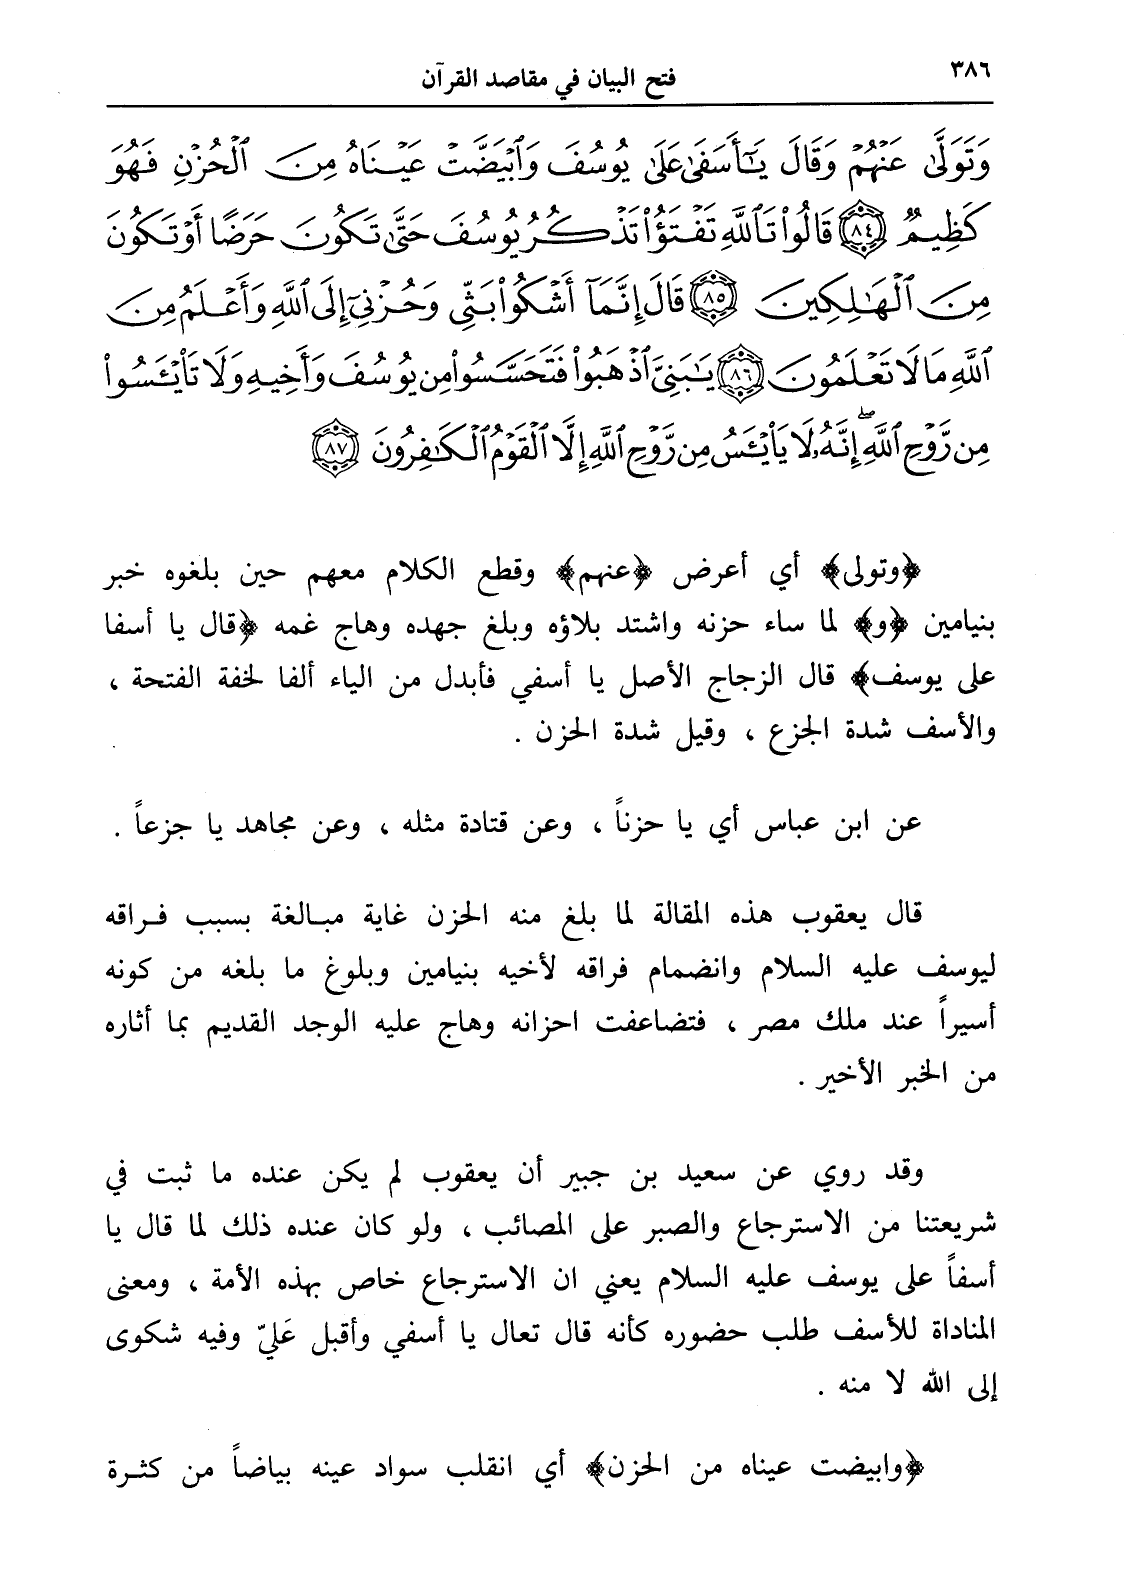 ٣٨٦
فتح البيان في مقاصد القرآن
وَتَوَلَّىٰ عَنۡهُمۡ وَقَالَ يَٰٓأَسَفَىٰ عَلَىٰ يُوسُفَ وَٱبۡيَضَّتۡ عَيۡنَاهُ مِنَ ٱلۡحُزۡنِ فَهُوَ
كَظِيمٞ ﴿٨٤﴾ قَالُواْ تَٱللَّهِ تَفۡتَؤُاْ تَذۡكُرُ يُوسُفَ حَتَّىٰ تَكُونَ حَرَضًا أَوۡ تَكُونَ
مِنَ ٱلۡهَٰلِكِينَ ﴿٨٥﴾ قَالَ إِنَّمَآ أَشۡكُواْ بَثِّي وَحُزۡنِيٓ إِلَى ٱللَّهِ وَأَعۡلَمُ مِنَ
ٱللَّهِ مَا لَا تَعۡلَمُونَ ﴿٨٦﴾ يَٰبَنِيَّ ٱذۡهَبُواْ فَتَحَسَّسُواْ مِن يُوسُفَ وَأَخِيهِ وَلَا تَاْيۡـَٔسُواْ
مِن رَّوۡحِ ٱللَّهِۖ إِنَّهُۥ لَا يَاْيۡـَٔسُ مِن رَّوۡحِ ٱللَّهِ إِلَّا ٱلۡقَوۡمُ ٱلۡكَٰفِرُونَ ﴿٨٧﴾
﴿وتولى﴾ أي أعرض ﴿عنهم﴾ وقطع الكلام معهم حين بلغوه خبر
بنيامين ﴿و﴾ لما ساء حزنه واشتد بلاؤه وبلغ جهده وهاج غمه ﴿قال يا أسفا
على يوسف﴾ قال الزجاج الأصل يا أسفي فأبدل من الياء ألفا لخفة الفتحة ،
والأسف شدة الجزع ، وقيل شدة الحزن .
عن ابن عباس أي يا حزناً ، وعن قتادة مثله ، وعن مجاهد يا جزعاً .
قال يعقوب هذه المقالة لما بلغ منه الحزن غاية مبالغة بسبب فراقه
ليوسف عليه السلام وانضمام فراقه لأخيه بنيامين وبلوغ ما بلغه من كونه
أسيراً عند ملك مصر ، فتضاعفت احزانه وهاج عليه الوجد القديم بما أثاره
من الخبر الأخير .
وقد روي عن سعيد بن جبير أن يعقوب لم يكن عنده ما ثبت في
شريعتنا من الاسترجاع والصبر على المصائب ، ولو كان عنده ذلك لما قال يا
أسفاً على يوسف عليه السلام يعني ان الاسترجاع خاص بهذه الأمة ، ومعنى
المناداة للأسف طلب حضوره كأنه قال تعال يا أسفي وأقبل عَليّ وفيه شكوى
إلى الله لا منه .
﴿وابيضت عيناه من الحزن﴾ أي انقلب سواد عينه بياضاً من كثرة